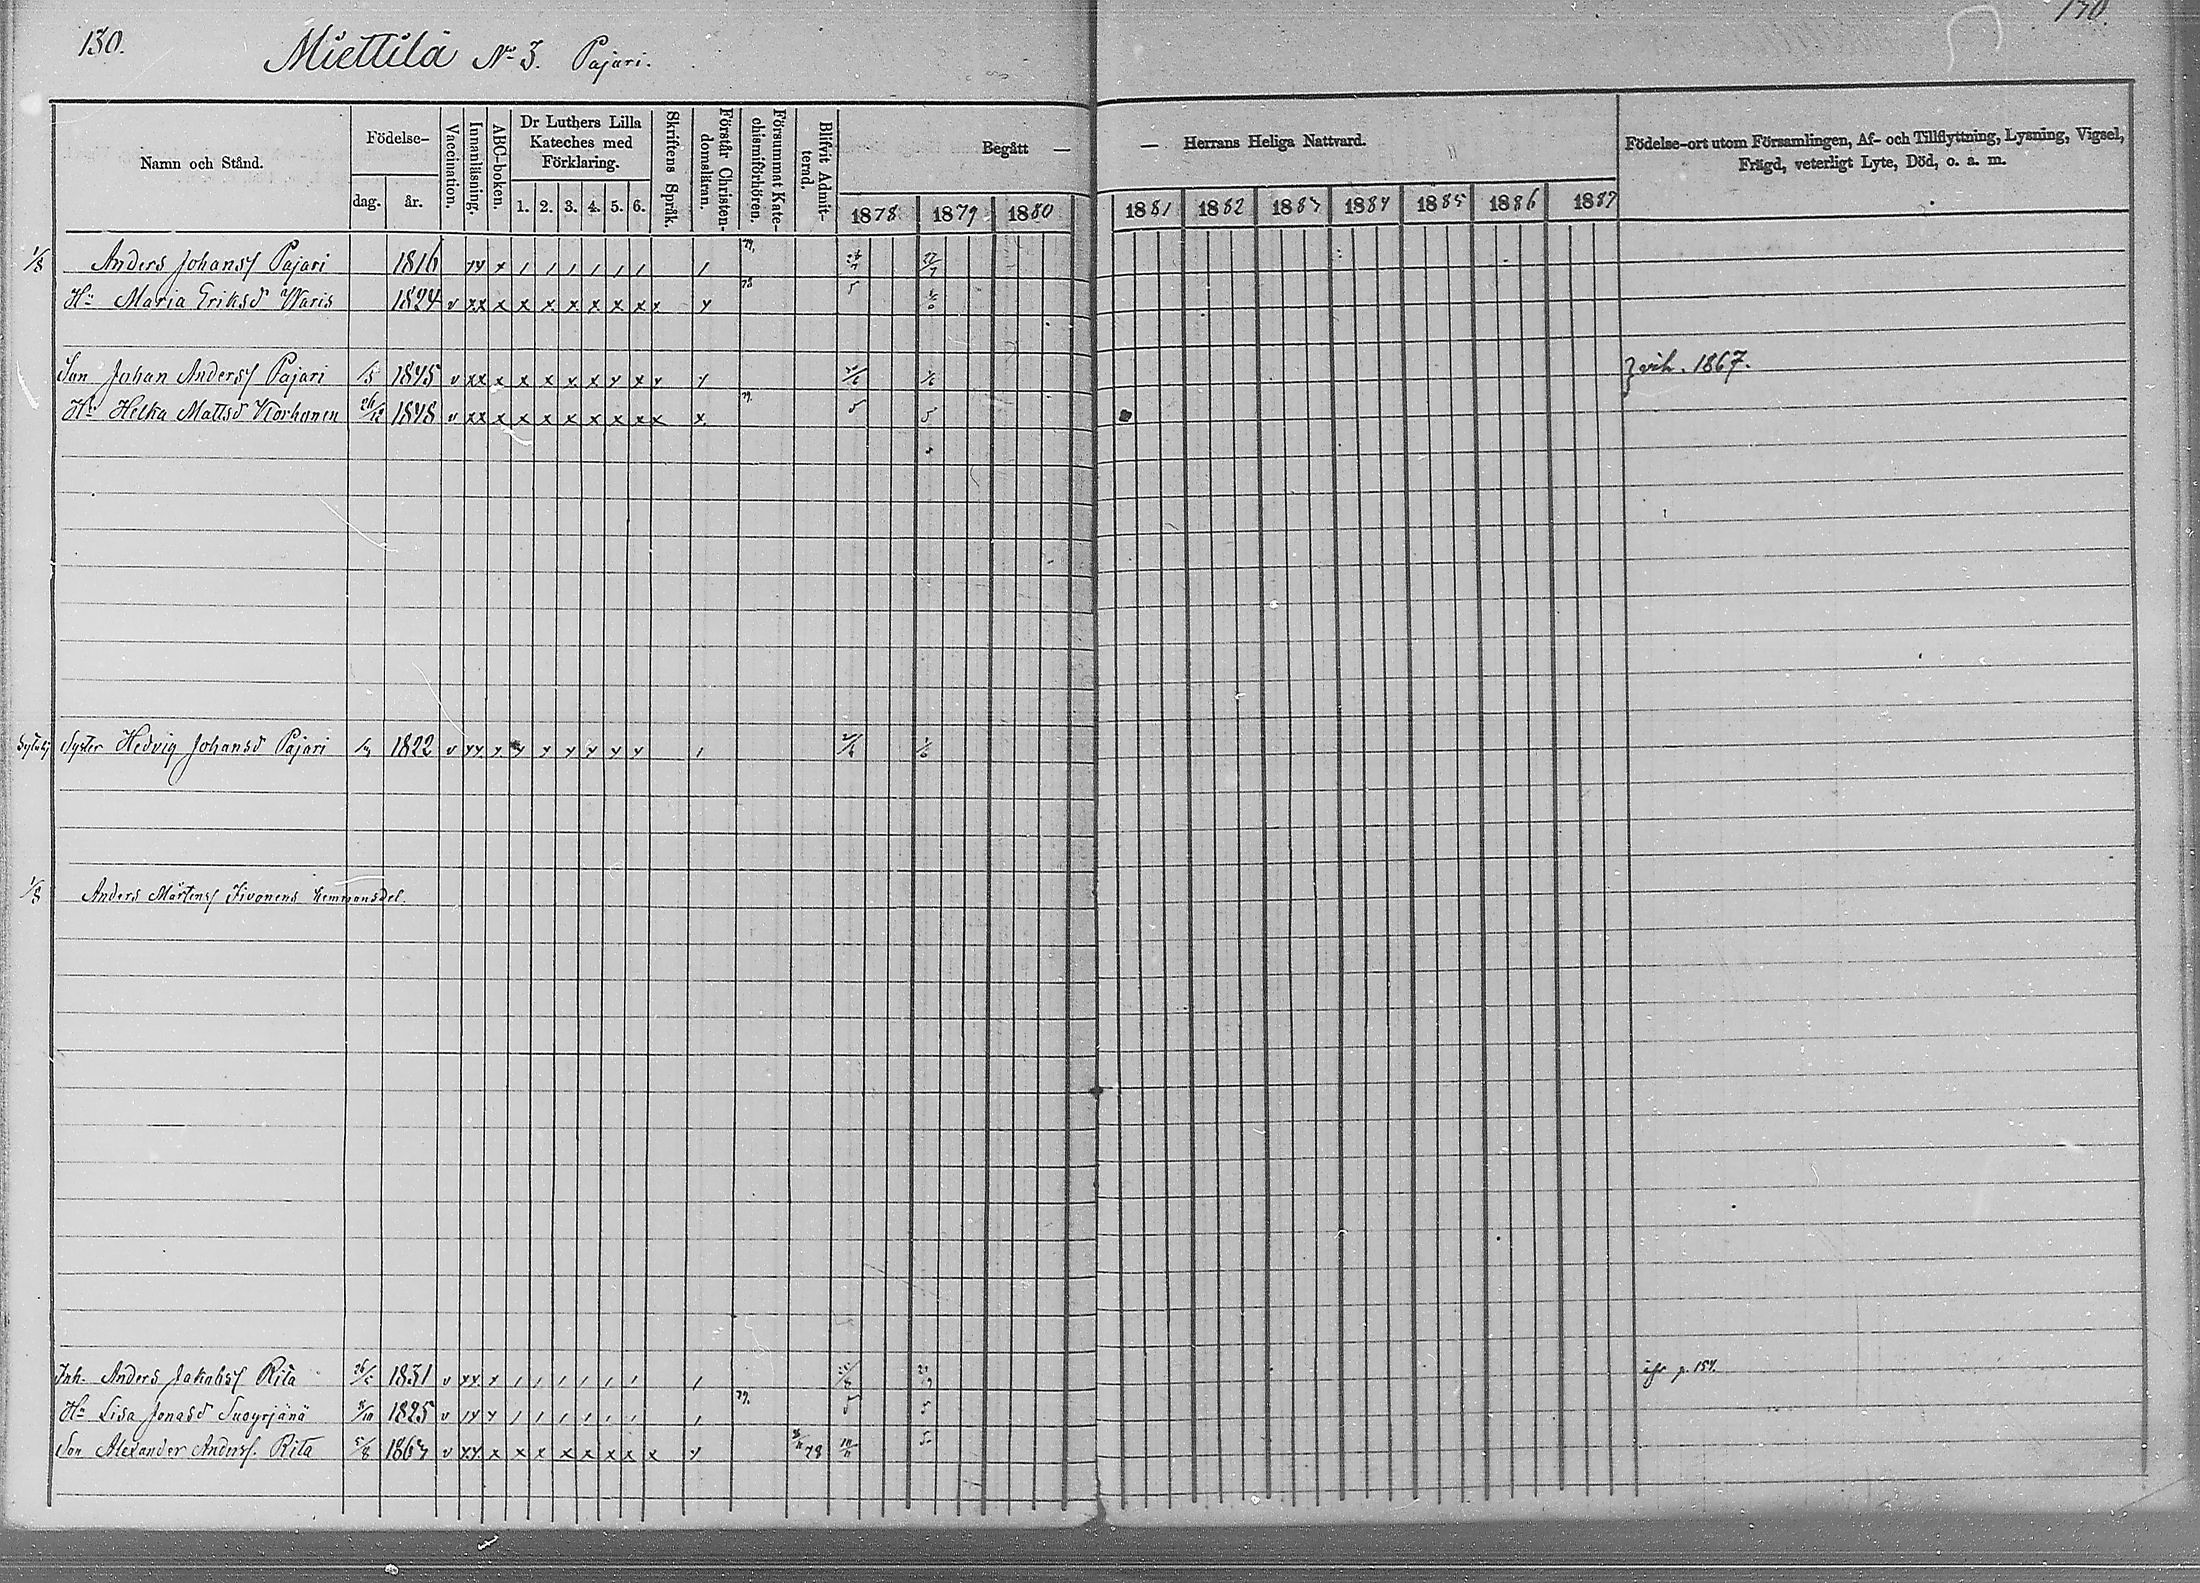 130.
Miettilä No 3. Pajari.
130.
Namn och Stånd.
Födelse-
dag.
år.
Vaccination.
Innanläsning.
ABC-boken.
Dr Luthers Lilla
Kateches med
Förklaring.
1. 2. 3. 4. 5. 6.
Skriftens Språk.
Förstår Christen-
domsläran.
Försummat Kate-
chismiförhören.
Blifvit Admit-
terad.
Begått —
— Herrans Heliga Nattvard.
1878 1879 1880 1881 1882 1883 1884 1885 1886 1887
Födelse-ort utom Församlingen, Af- och Tillflyttning, Lysning, Vigsel,
Frägd, veterligt Lyte, Död, o. a. m.
1/8 Anders Johanss Pajari 1816 79.
Hu Maria Eriksd Waris 1824 v xx x x x x x x x x 78
Son Johan Anderss Pajari 1845 v xx x x x x x } vih. 1867.
Hu Helka Mattsd Korhonen 26/12 1848 v xx x x x x x x x x x 79. 5 5
Syster Hedvig Johansd Pajari 1822
1/8 Anders Mårtenss Iivonens hemmansdel.
Inh. Anders Jakobss Rita 1831 v xx x p. 157.
Hu Lisa Jonasd Suoyrjänä 1825 v 79. 5 5
Son Alexander Anderss. Rita 5/8 1863 v xx x x x x x x x x 78